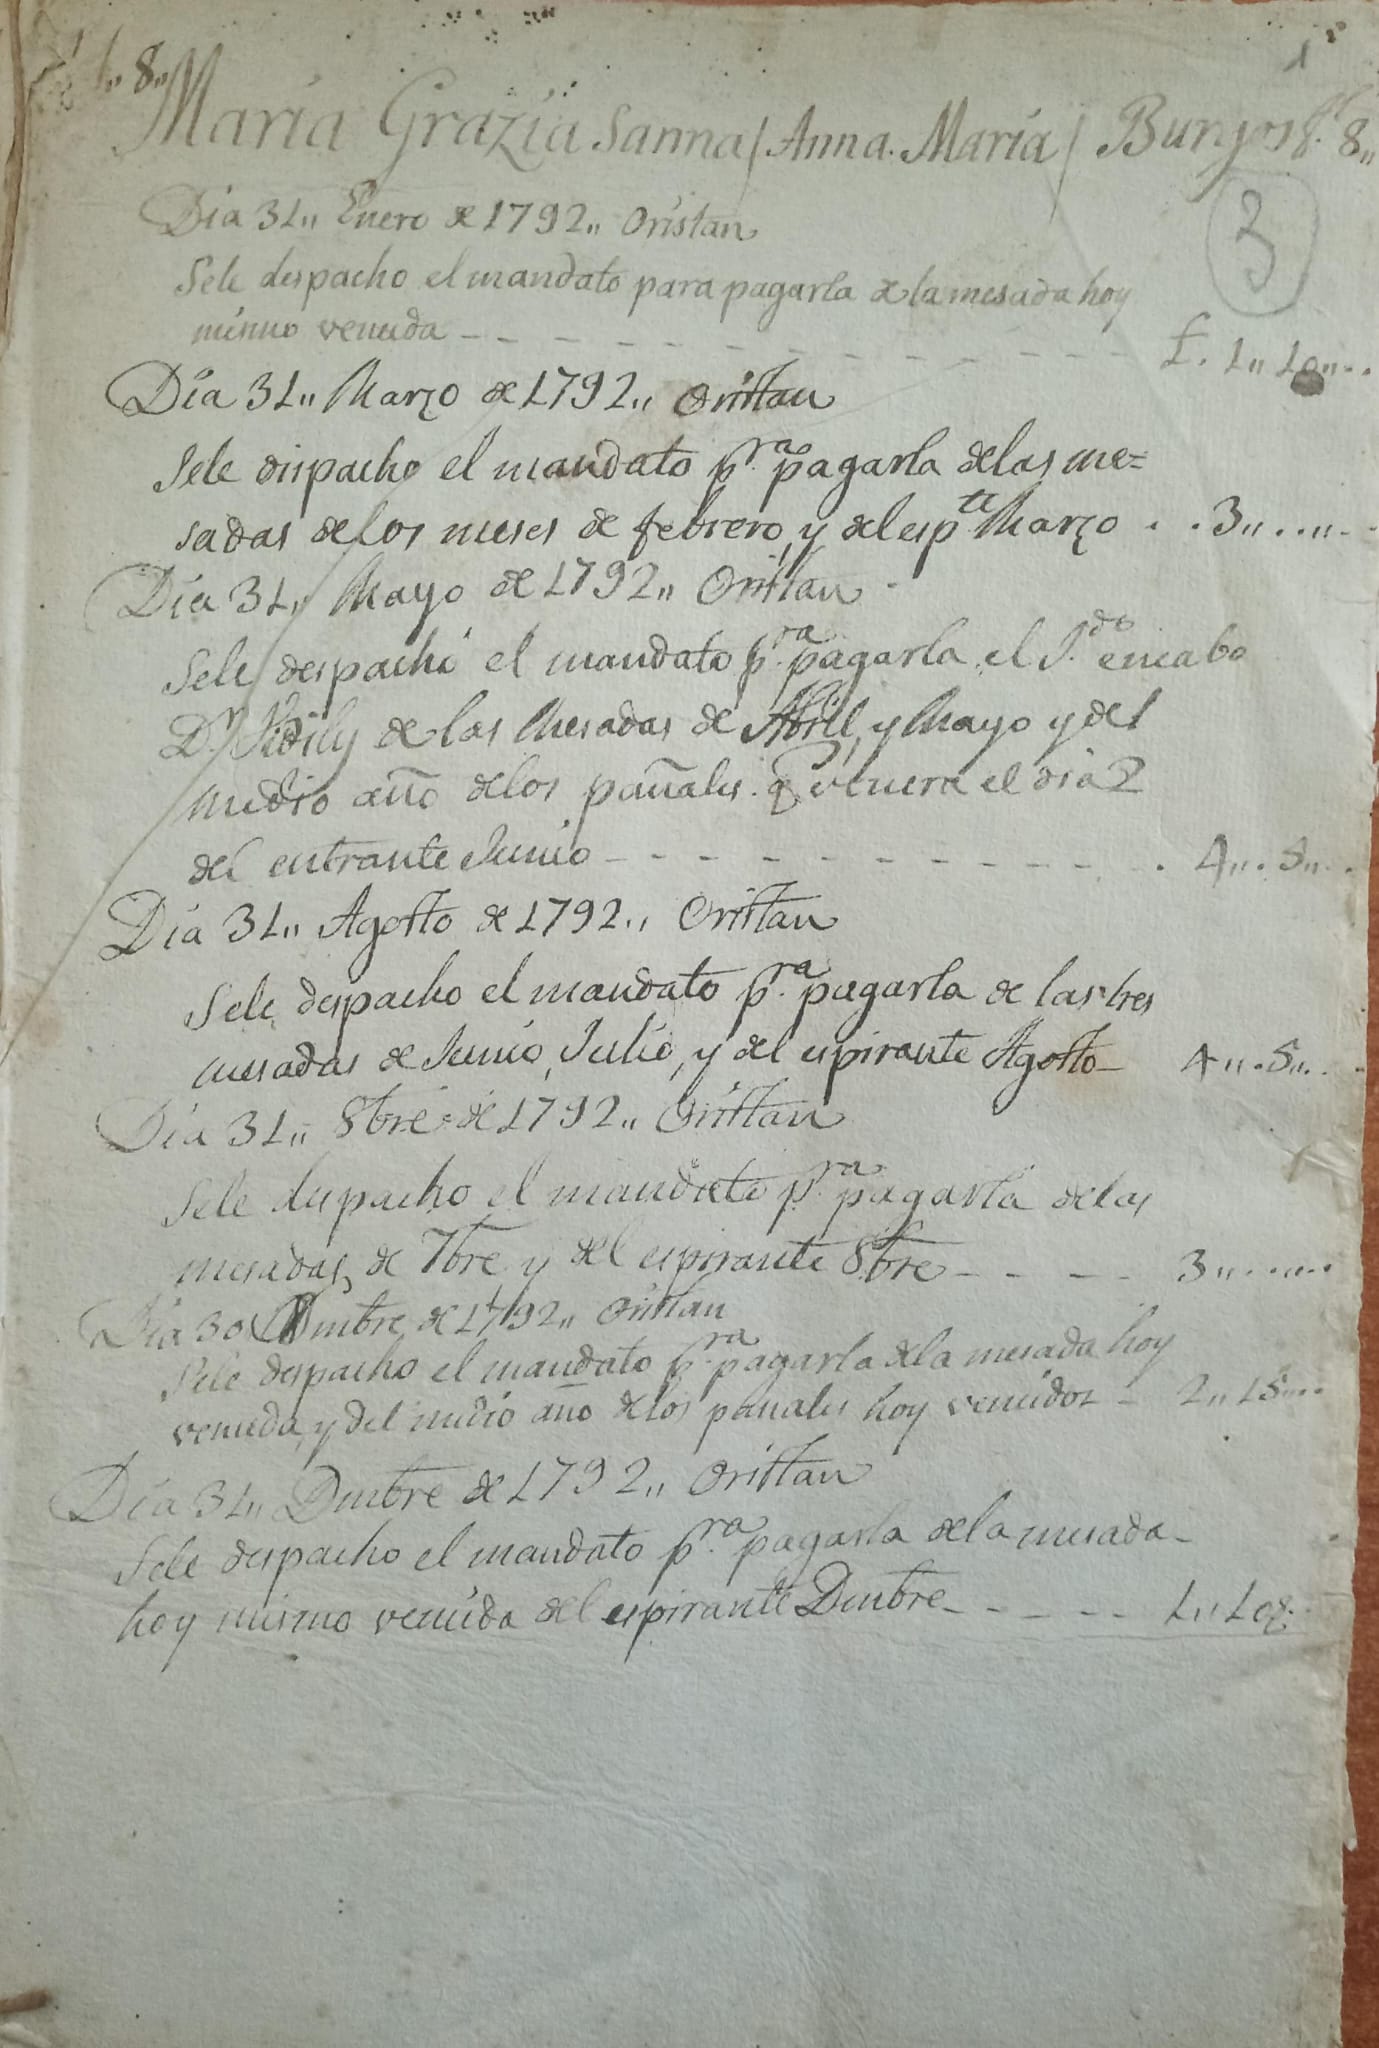 1
8„
María Grazia Sanna / Anna María / Burgos f. 8„
3
Día 31„ Enero de 1792„ Oristan
Sele despacho el mandato para pagarla de la mesada hoy
mismo vencida - - - - - - - - - - - £. 1„ 10„...
Día 31„ Marzo de 1792„ Oristan
Sele dispacho el mandato p.ra pagarla delas me=
sadas de los meses de febrero, y del esp.te Marzo . . 3„...„..
Día 31„ Mayo de 1792„ Oristan
Sele despachó el mandato p.ra pagarla el S.do en cabo
Dn de las Mesadas de Abril, y Mayo y del
medio año delos pañales. q vencera el dia 2
del entrante Junio - - - - - - - - - - - . 4„. 5„..
Día 31„ Agosto de 1792„ Oristan
Sele despacho el mandato p.ra pagarla de las tres
mesadas de Junio, Julio, y del espirante Agosto - 4„.5„..
Día 31„ 8bre de 1792„ Oristan
Sele despacho el mandato p.ra pagarla delas
mesadas de 7bre y del espirante 8bre - - - - 3„..„..
Día 30 de 1792„ Oristan
Sele despacho el mandato p.ra pagarla dela mesada hoy
vencida, y del medio año delos pañales hoy vencidos - 2„ 15„..
Día 31„ Dmbre de 1792„ Oristan
Sele despacho el mandato p.ra pagarla dela mesada -
hoy mismo vencida del espirante Dmbre - - - - - 1„ 10